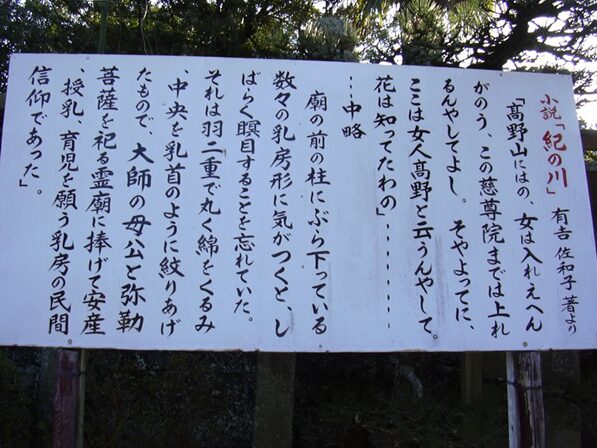 小説「紀の川」 有吉佐和子著より
「高野山にはの、女は入れえへん
がのう、この慈尊院までは上れ
るんやしてよし。そやよってに、
ここは女人高野と云うんやして。
花は知ってたわの」‥‥‥‥
‥‥中略
廟の前の柱にぶら下っている
数々の乳房形に気がつくと、し
ばらく瞑目することを忘れていた。
それは羽二重で丸く綿をくるみ
、中央を乳首のように絞りあげ
たもので、大師の母公と弥勒
菩薩を祀る霊廟に捧げて安産
、授乳、育児を願う乳房の民間
信仰であった」。